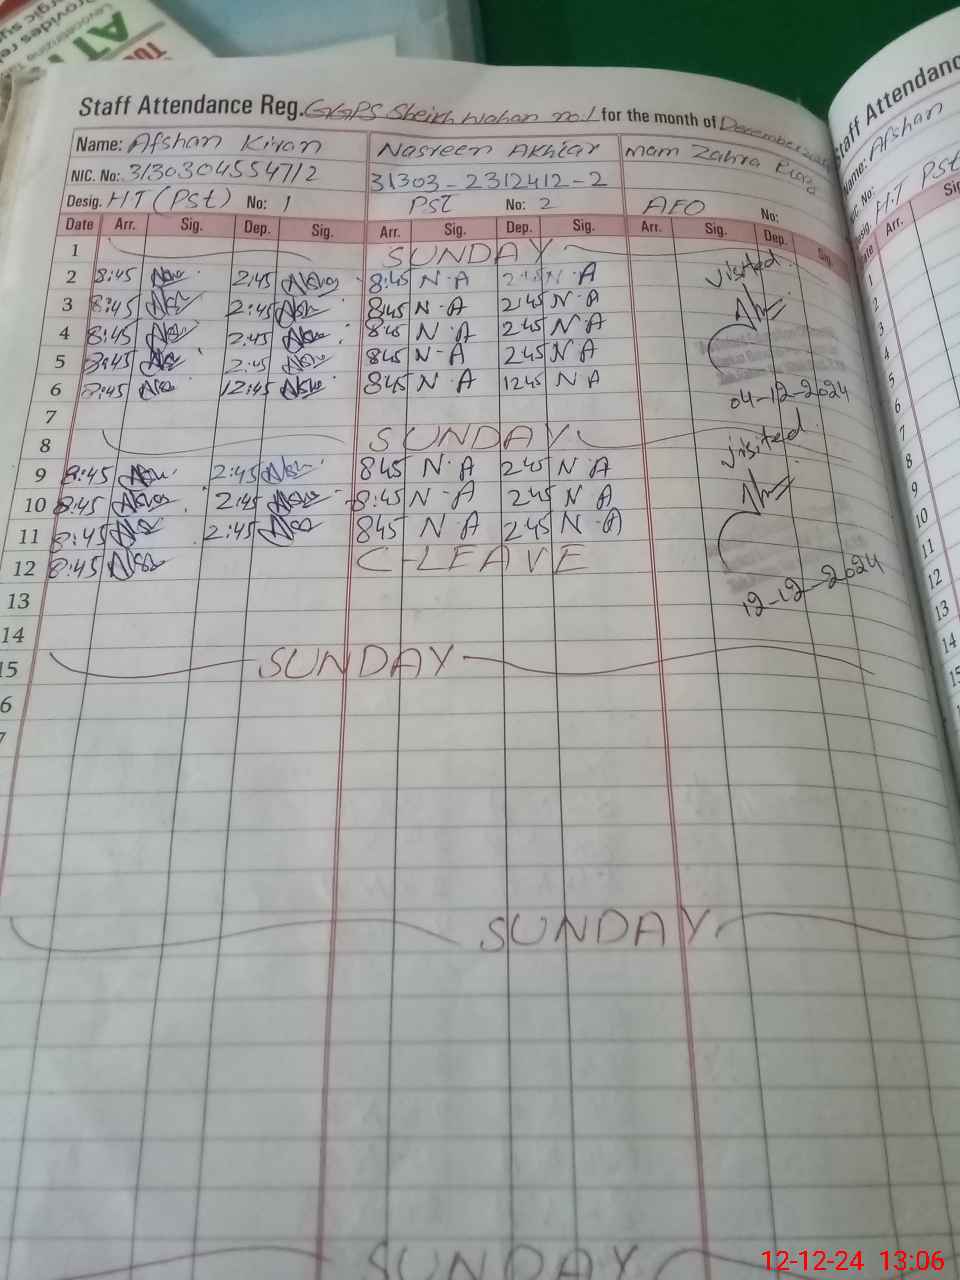 Staff Attendance Reg. GGPS Sheikh Wahan no.1 for the month of December
Name: Afshan Kiran Nasreen Akhtar Mam Zahra
NIC. No: 3130304554712 31303-2312412-2
Desig. H.T (PST) No: 1 PST No: 2 AEO No:
Date Arr. Sig. Dep. Sig. Arr. Sig. Dep. Sig. Arr. Sig. Dep. Sig.
1 SUNDAY
2 8:45 2:45 8:45 N-A 2:45 N-A visited
3 8:45 2:45 8:45 N-A 2:45 N-A
4 8:45 2:45 8:45 N-A 245 N-A
5 8:45 2:45 845 N-A 245 N-A
6 8:45 12:45 845 N-A 1245 N-A 04-12-2024
7
8 SUNDAY visited
9 8:45 2:45 845 N-A 245 N-A
10 8:45 2:45 8:45 N-A 245 N-A
11 8:45 2:45 845 N-A 245 N-A
12 8:45 C-LEAVE 12-12-2024
13
14
15 SUNDAY
6
7
SUNDAY
SUNDAY
Staff Attendanc
Name: Afshan
No:
Desig. H.T PST
Date Arr. Sig
1
2
3
4
5
6
7
8
9
10
11
12
13
14
15
12-12-24 13:06